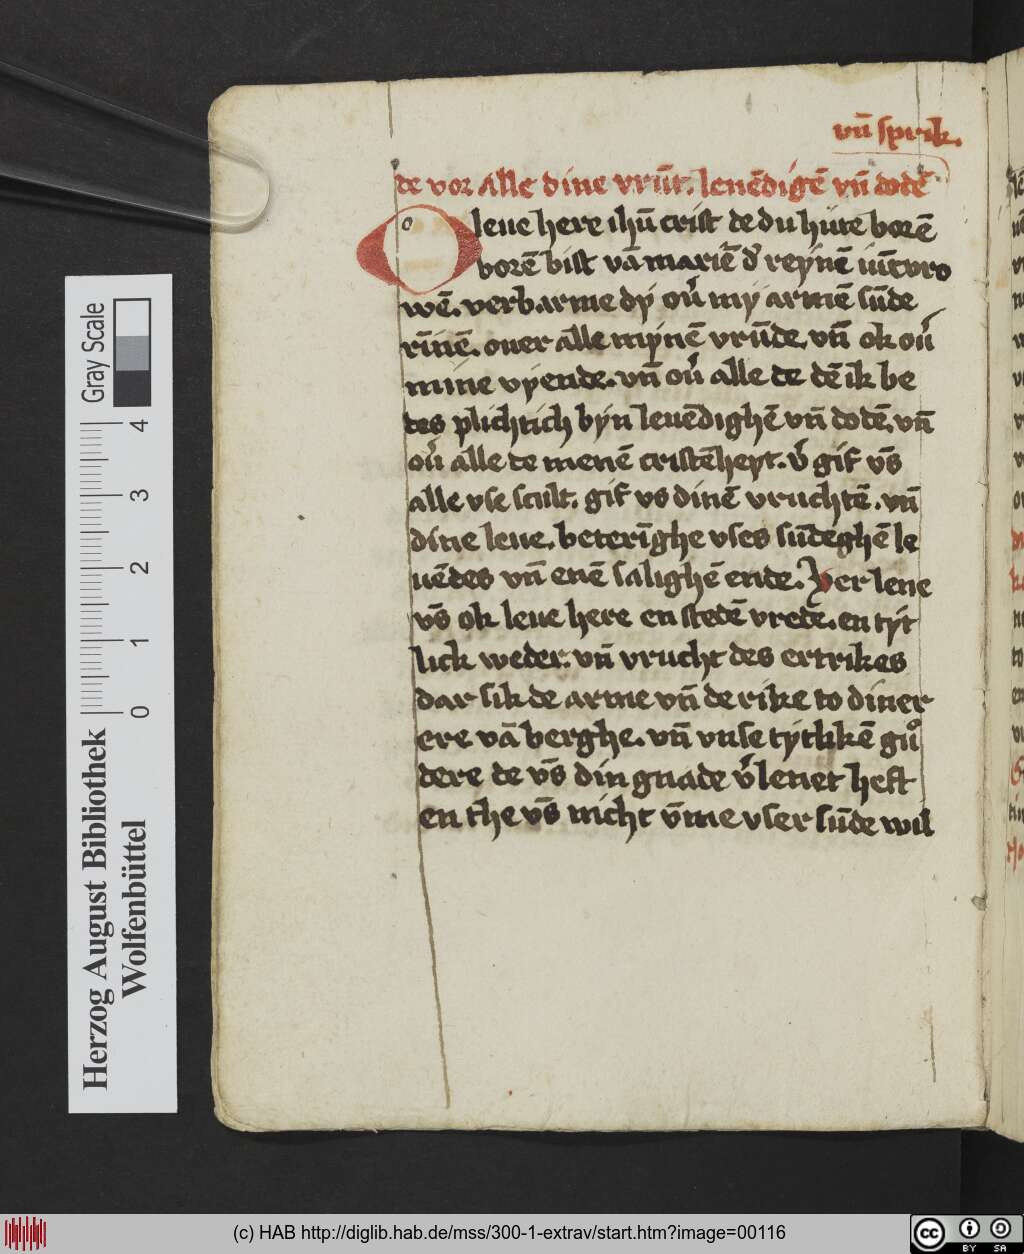 vn̄ sprik.
de vor alle dine vrūt. leuēdigē vn̄ dodē
O leue here ihū crist de du hute borē
borē bist vā mariē d' reynē iūcvro
wē. verbarme dy ou' my armē sūde
rīnē. ouer alle mynē vrūde, vn̄ ok ou'
mine vyende. vn̄ ou' alle de dē ik be
des plichtich byn leuēdighē vn̄ dodē, vn̄
ou' alle de menē cristēheyt. v' gif v̄s
alle vse scult. gif vs dinē vruchtē. vn̄
dine leue, beterīghe vses sūdeghē le
uēdes vn̄ enē salighē ende. Ver lene
v̄s ok leue here en stedē vrede. en tyt
lick weder. vn̄ vrucht des ertrikes
dar sik de arme vn̄ de rike to diner
ere vā berghe. vn̄ vnse tytlikē gů
dere de v̄s din gnade v'lenet heft
en the v̄s nicht v̄me vser sūde wil
Herzog August Bibliothek
Wolfenbüttel
0 1 2 3 4
Gray Scale
(c) HAB http://diglib.hab.de/mss/300-1-extrav/start.htm?image=00116
cc BY SA